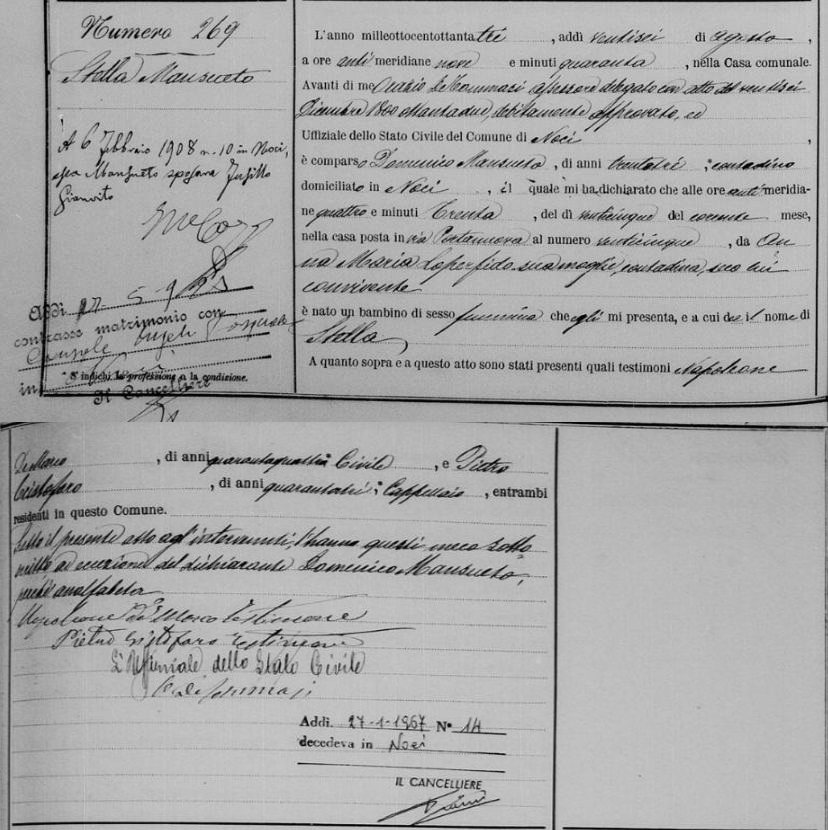 Numero 269
Stella Mansueto
A 6 Febbraio 1908 n. 10 in Noci,
essa Mansueto sposava
Gianvito
Addì 27-5-9
contrasse matrimonio con
Console
in Noci
* Si indichi la professione o la condizione.
Il Cancelliere
L'anno milleottocentottantatre, addì ventisei di Agosto,
a ore anti meridiane nove e minuti quaranta, nella Casa comunale.
Avanti di me Orazio De Tommasi assessore delegato con atto del ventisei
Dicembre 1800 ottantadue, debitamente approvato,
Uffiziale dello Stato Civile del Comune di Noci,
è comparso Domenico Mansueto, di anni trentatri, contadino
domiciliato in Noci, il quale mi ha dichiarato che alle ore antimeridia-
ne quattro e minuti trenta, del dì venticinque del corrente mese,
nella casa posta in via Portanuova al numero venticinque, da An
na Maria Loperfido sua moglie, contadina, seco lui
convivente
è nato un bambino di sesso femmina che egli mi presenta, e a cui dà il nome di
Stella,
A quanto sopra e a questo atto sono stati presenti quali testimoni Napoleone
De Marco, di anni quarantaquattro Civile, e Pietro
Cristofaro, di anni quarantatri, Cappellaio, entrambi
residenti in questo Comune.
Letto il presente atto agl'intervenuti, l'hanno questi meco sotto
scritto ad eccezione del dichiarante Domenico Mansueto,
perché analfabeta
Napoleone De Marco testimone
Pietro Cristofaro testimone
L'Uffiziale dello Stato Civile
O. De Tommasi
Addì. 27-1-1967 N° 14
decedeva in Noci
IL CANCELLIERE